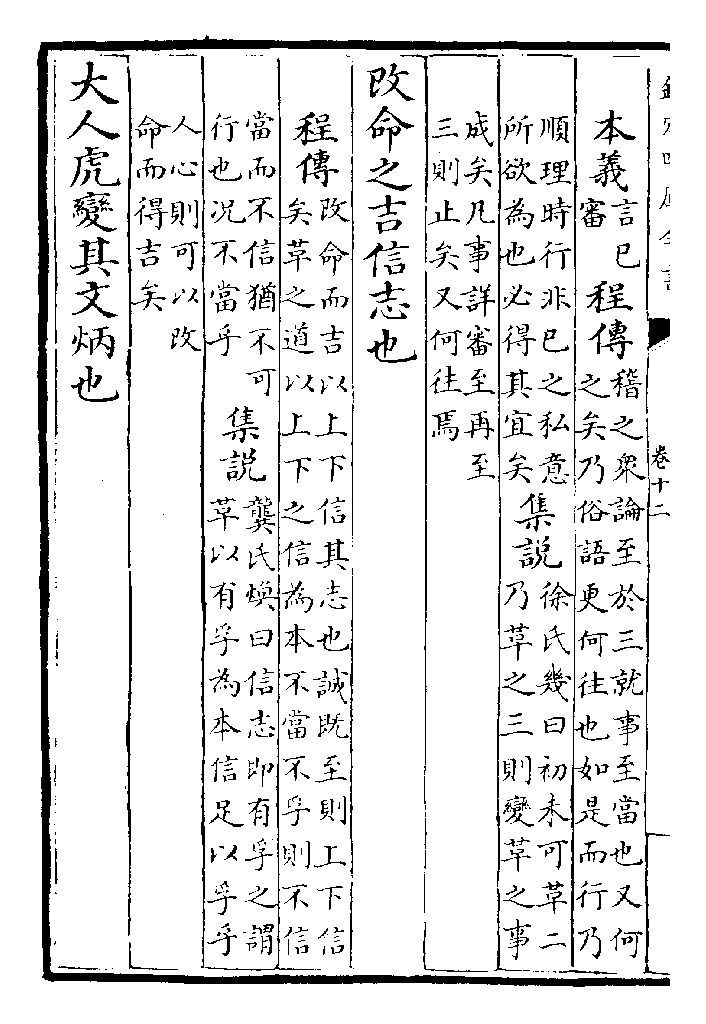 卷十二
本義言已
審
程傳稽之衆論至於三就事至當也又何
之矣乃俗語更何往也如是而行乃
順理時行非已之私意
所欲為也必得其宜矣
集説徐氏幾曰初未可革二
乃革之三則變革之事
成矣凡事詳審至再至
三則止矣又何往焉
改命之吉信志也
程傳改命而吉以上下信其志也誠既至則上下信
矣革之道以上下之信為本不當不孚則不信
當而不信猶不可
行也况不當乎
集説龔氏煥曰信志即有孚之謂
革以有孚為本信足以孚乎
人心則可以改
命而得吉矣
大人虎變其文炳也